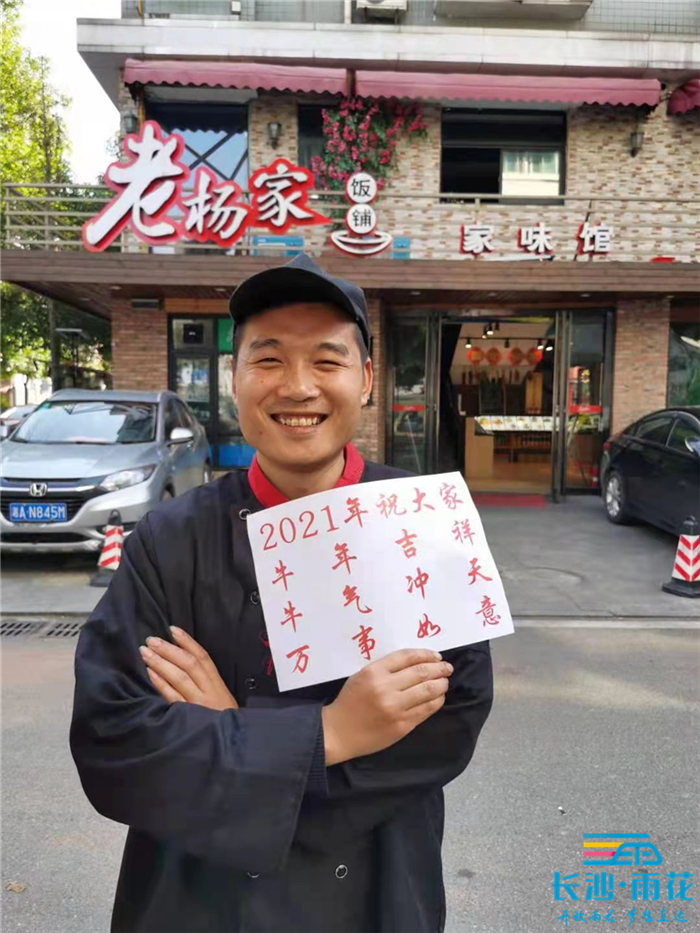 老杨家
饭铺
家味馆
2021年祝大家
牛年吉祥
牛气冲天
万事如意
湘A·N845M
长沙·雨花